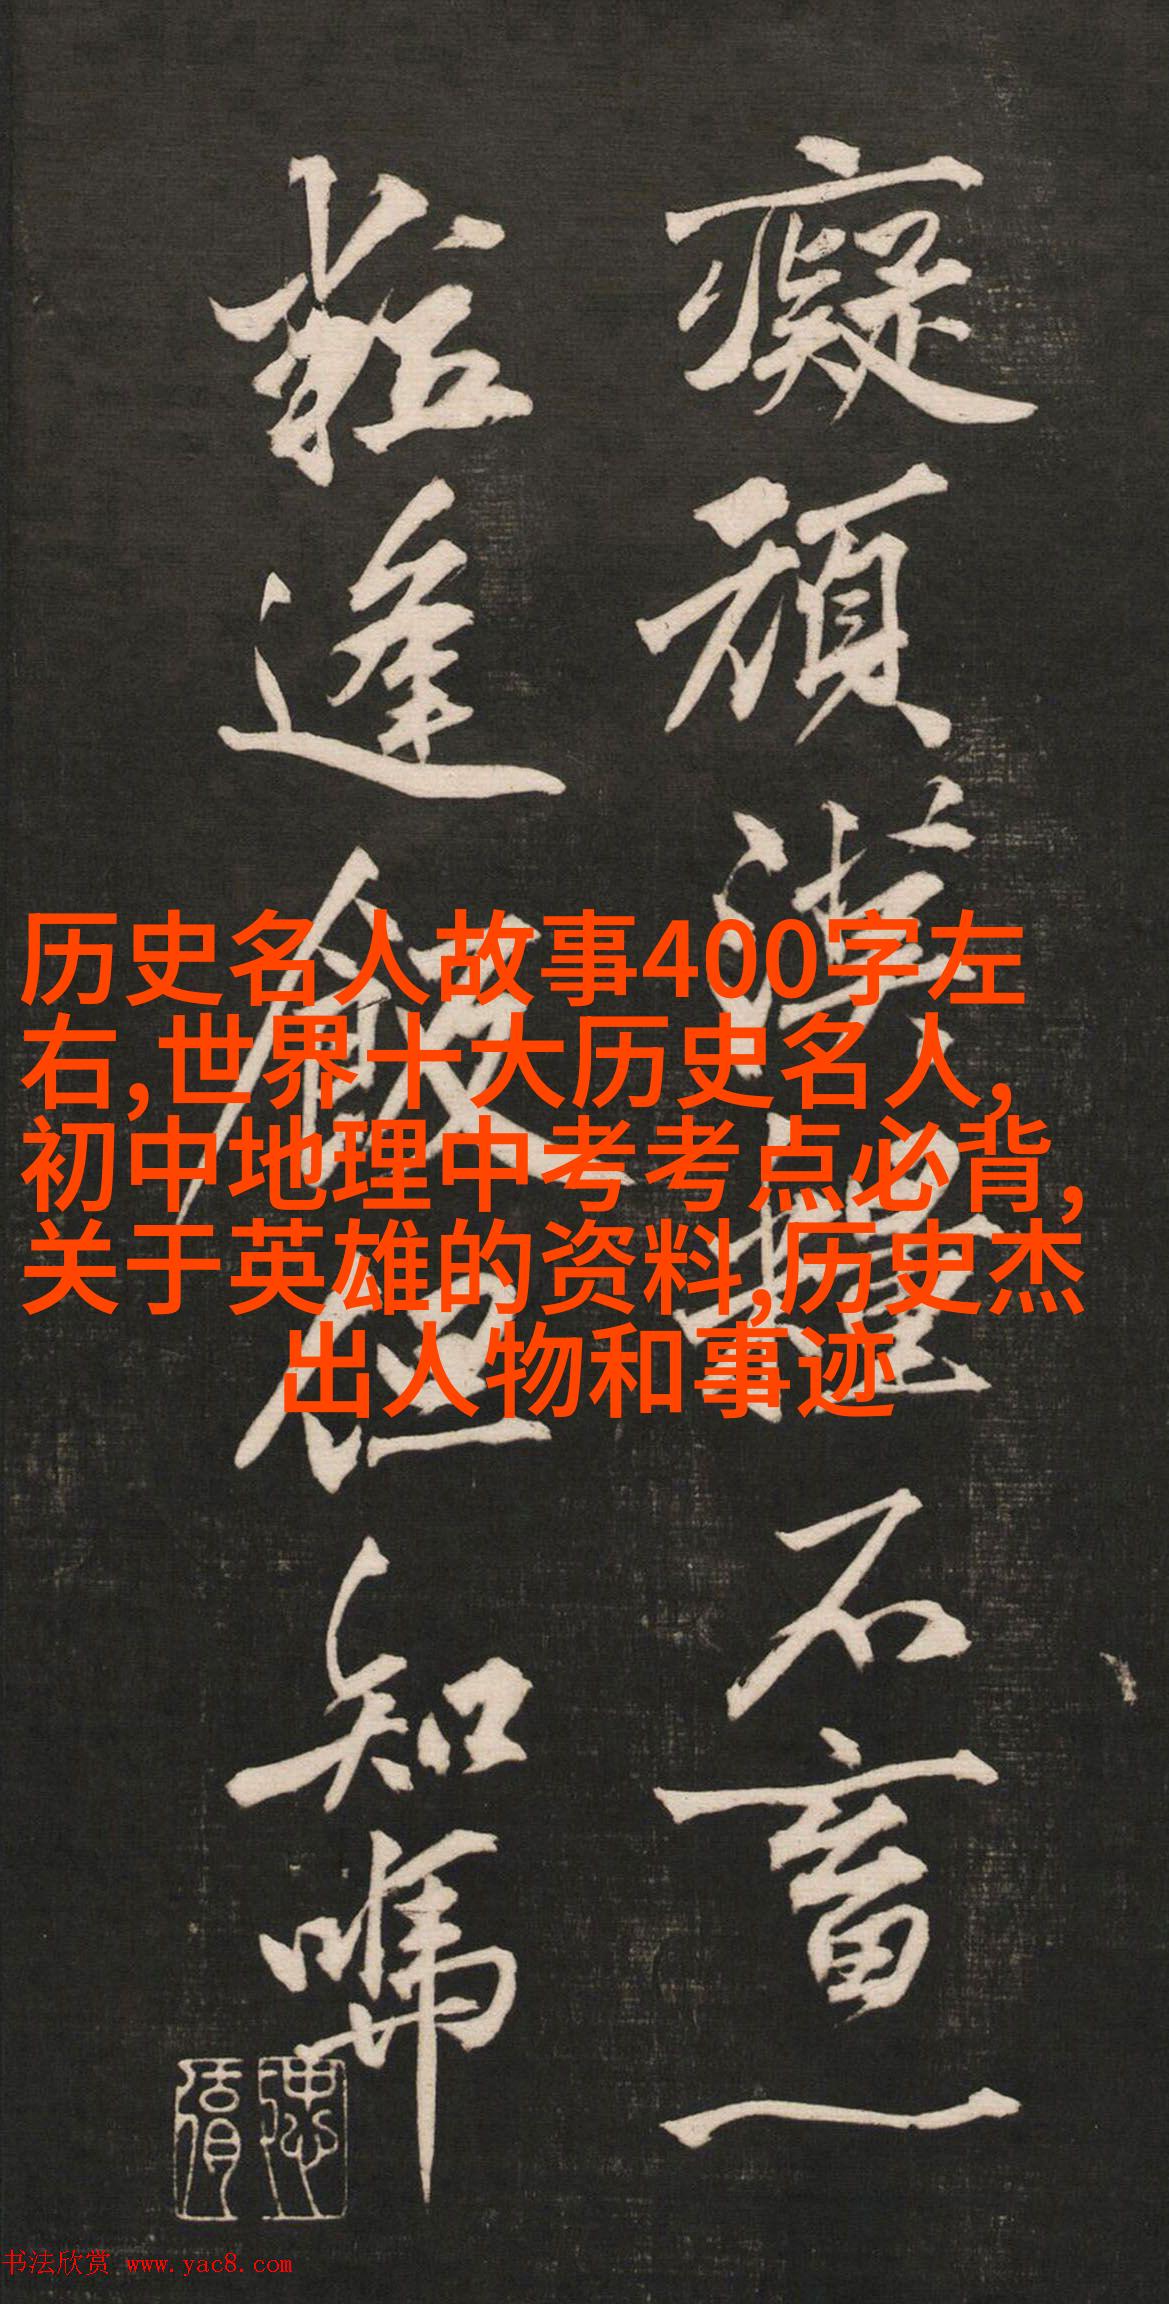 癡頑漢石畜一
逢飯但知
历史名人故事400字左
右,世界十大历史名人,
初中地理中考考点必背,
关于英雄的资料,历史杰
出人物和事迹
书法欣赏 www.yac8.com